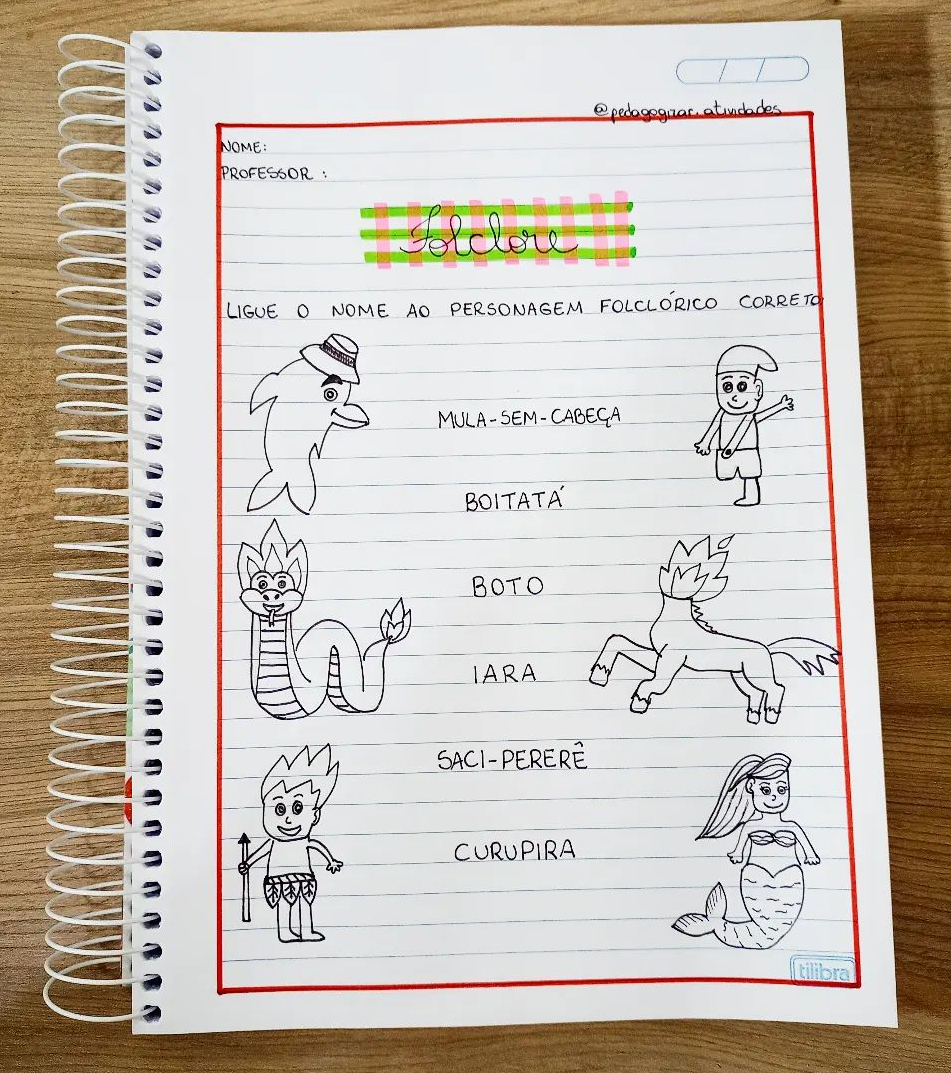 @pedagogizar.atividades
NOME:
PROFESSOR :
Folclore
LIGUE O NOME AO PERSONAGEM FOLCLÓRICO CORRETO
MULA-SEM-CABEÇA
BOITATÁ
BOTO
IARA
SACI-PERERÊ
CURUPIRA
tilibra